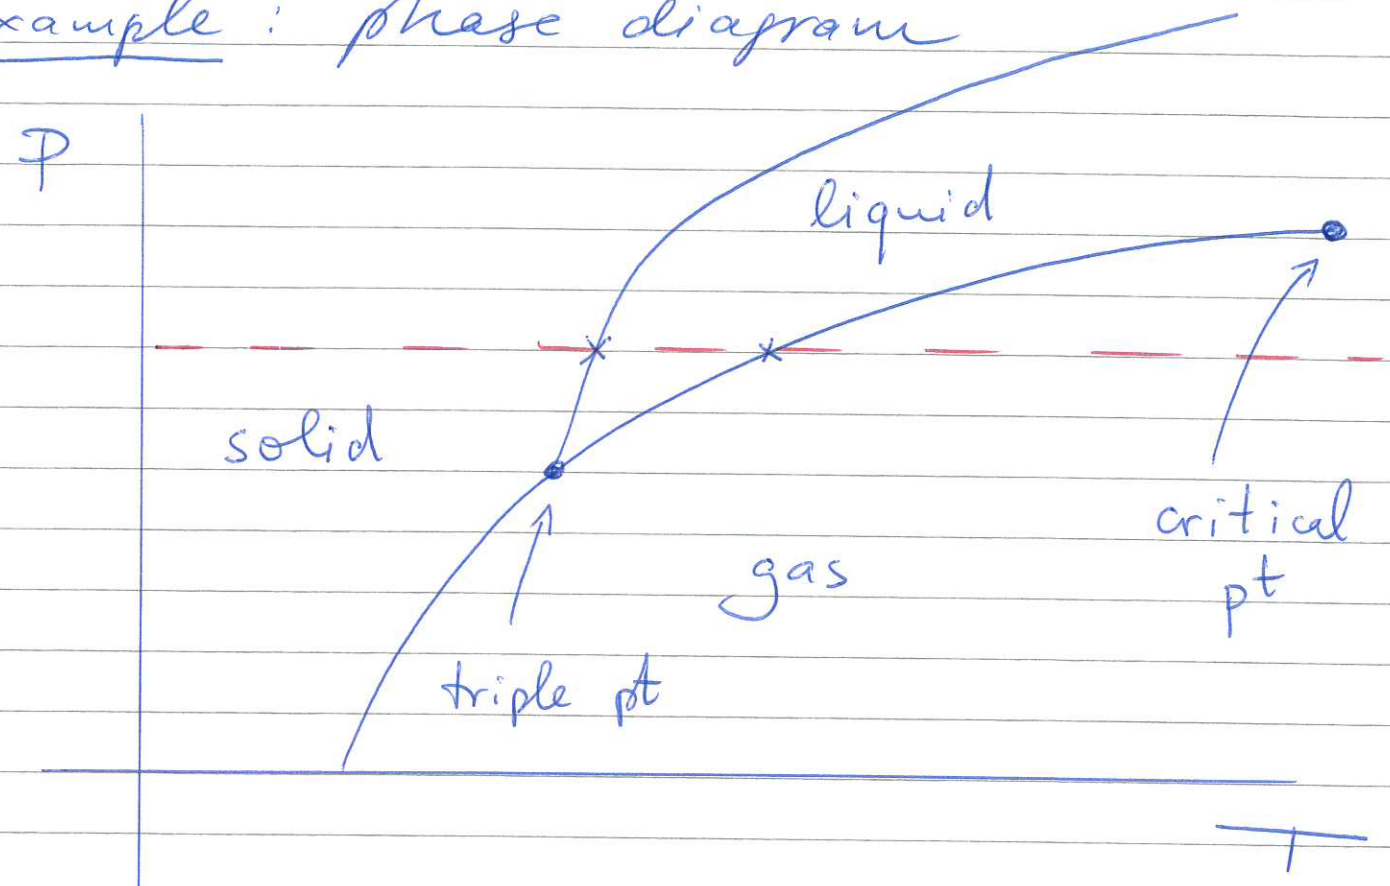 xample : phase diagram
P
liquid
solid
critical
pt
gas
triple pt
T